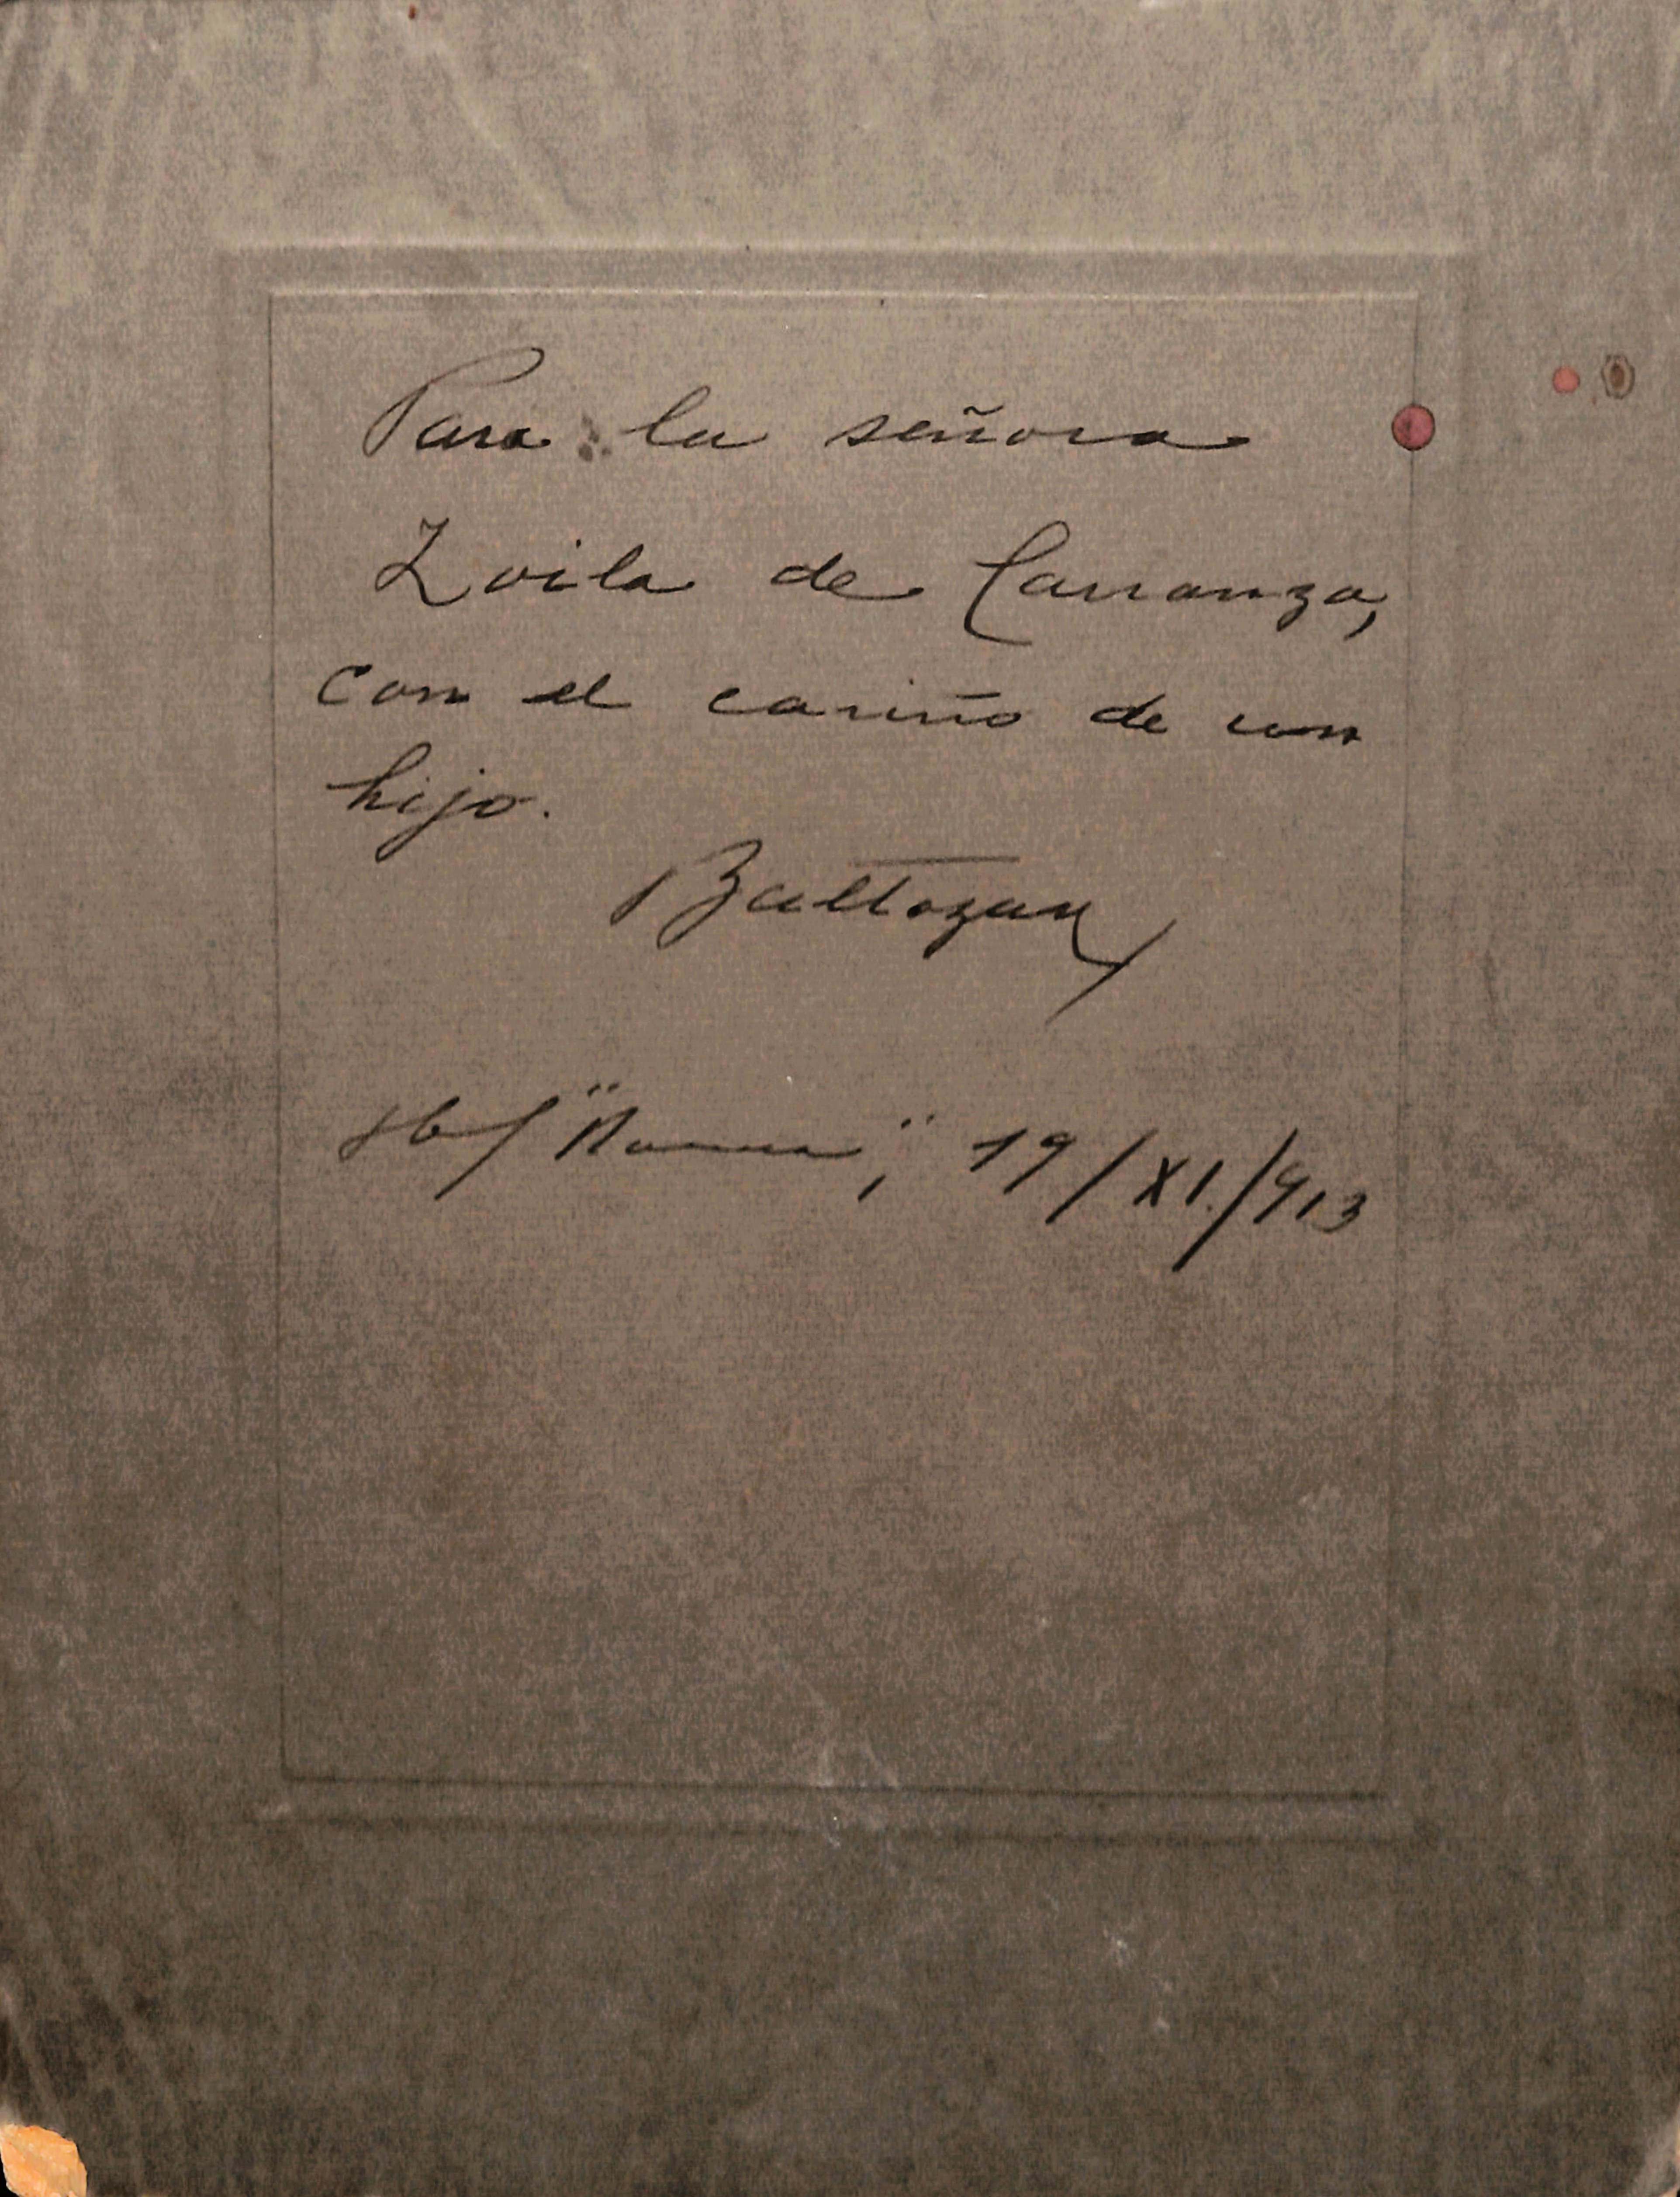 Para la señora
Zoila de Carranza,
con el cariño de un
hijo.
Baltazar
"Roma", 19/XI./913